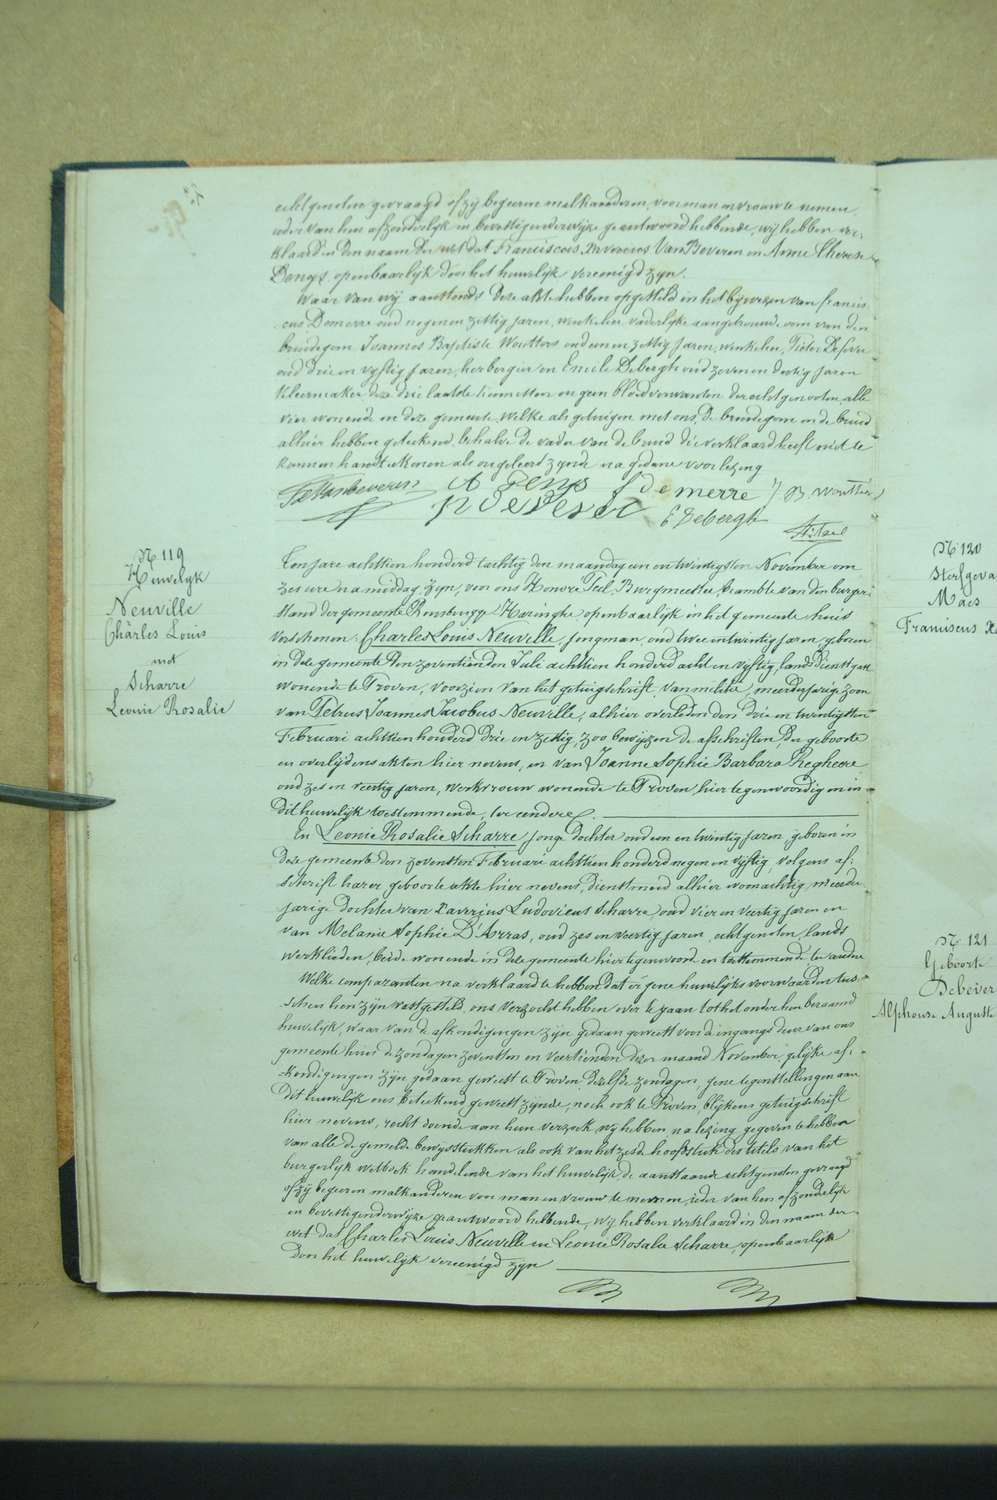 echtgenoten gevraagd of zij begeeren malkanderen voor man en vrouw te nemen,
ieder van hen afzonderlijk en bevestigenderwijze geantwoord hebbende, wij hebben ver-
klaard in den naam der wet dat Franciscus Van Beveren en Anne Therese
Denys openbaarlijk door het huwelijk vereenigd zijn.
Waar van wij aanstonds deze akte hebben opgesteld in het bijwezen van Francis-
cus Demerre oud negen en zestig jaren, winkelier, vaderlijke aangetrouwde oom van den
bruidegom Joannes Baptiste Woutters oud een en zestig jaren, winkelier, Pieter Desever
oud drie en vijftig jaren, herbergier en Emile Debergh oud zeven en dertig jaren
kleermaker deze drie laatste kennissen en geen bloedverwanten der echtgenooten, alle
vier wonende in deze gemeente, welke als getuigen met ons, de bruidegom en de bruid
alhier hebben geteekend, behalve de vader van de bruid die verklaard heeft niet te
kunnen handteekenen als ongeleerd zijnde na gedane voorlezing
F Vanbeveren A Denys F demerre J B Woutters
P Desever E Debergh
N 119
Huwelijk
Neuville
Charles Louis
met
Scharre
Leonie Rosalie
Ten jare achttien honderd tachtig den maandag een en twintigsten November om
zes ure na middag zijn, voor ons Honoré Teil, Burgmeester, Ambte van den burger-
stand der gemeente Rousbrugge Haringhe openbaarlijk in het gemeente huis
verschenen: Charles Louis Neuville, jongman, oud twee en twintig jaren, geboren
in deze gemeente den zeventienden Juli achttien honderd acht en vijftig, landsdienstgast
wonende te Proven, voorzien van het getuigschrift van militie, meerderjarige zoon
van Petrus Joannes Jacobus Neuville, alhier overleden den drie en twintigsten
Februari achttien honderd drie en zestig, zoo bewijzen de afschriften der geboorte
en overlijdens akten hier nevens, en van Joanne Sophie Barbara Segheere
oud zes en veertig jaren, werkvrouw wonende te Proven hier tegenwoordig en in
dit huwelijk toestemmende, ter eendere.
En Leonie Rosalie Scharre jonge dochter oud een en twintig jaren, geboren in
deze gemeente den zevensten Februari achttien honderd negen en vijftig, volgens af-
schrift harer geboorte akte hier nevens, dienstmeid alhier woonachtig, meerder-
jarige dochter van Xaverius Ludovicus Scharre, oud vier en veertig jaren en
van Melanie Sophie D'Arras, oud zes en veertig jaren, echtgenoten, lands
werklieden, beide wonende in deze gemeente hier tegenwoord en toestemmende ter andere
Welke comparanten na verklaard te hebben dat er gene huwelijks voorwaarden tus-
schen hen zijn vastgesteld, ons verzocht hebben over te gaan tot het onder hen beraamd
huwelijk, waar van de afkondigingen zijn gedaan geweest voor d'ingangdeur van ons
gemeente huis de zondagen zevensten en veertienden dezer maand November, gelijke af-
kondigingen zijn gedaan geweest te Proven dezelfde zondagen, gene tegenstellingen aan
dit huwelijk ons beteekend geweest zijnde, noch ook te Proven, blijkens getuigschrift
hier nevens, recht doende aan hun verzoek, wij hebben, na lezing gegeven te hebben
van alle de gemelde bewijsstukken als ook van het zesde hoofdstuk des titels van het
burgerlijk wetboek handelende van het huwelijk, de aanstaande echtgenoten gevraagd
of zij begeeren malkanderen voor man en vrouw te nemen, ieder van hen afzonderlijk
en bevestigenderwijze geantwoord hebbende, wij hebben verklaard in den naam der
wet dat Charles Louis Neuville en Leonie Rosalie Scharre, openbaarlijk
door het huwelijk vereenigd zijn
N 120
Sterfgeva
Maes
Franciscus
N 121
Geboorte
Debever
Alphonse Auguste